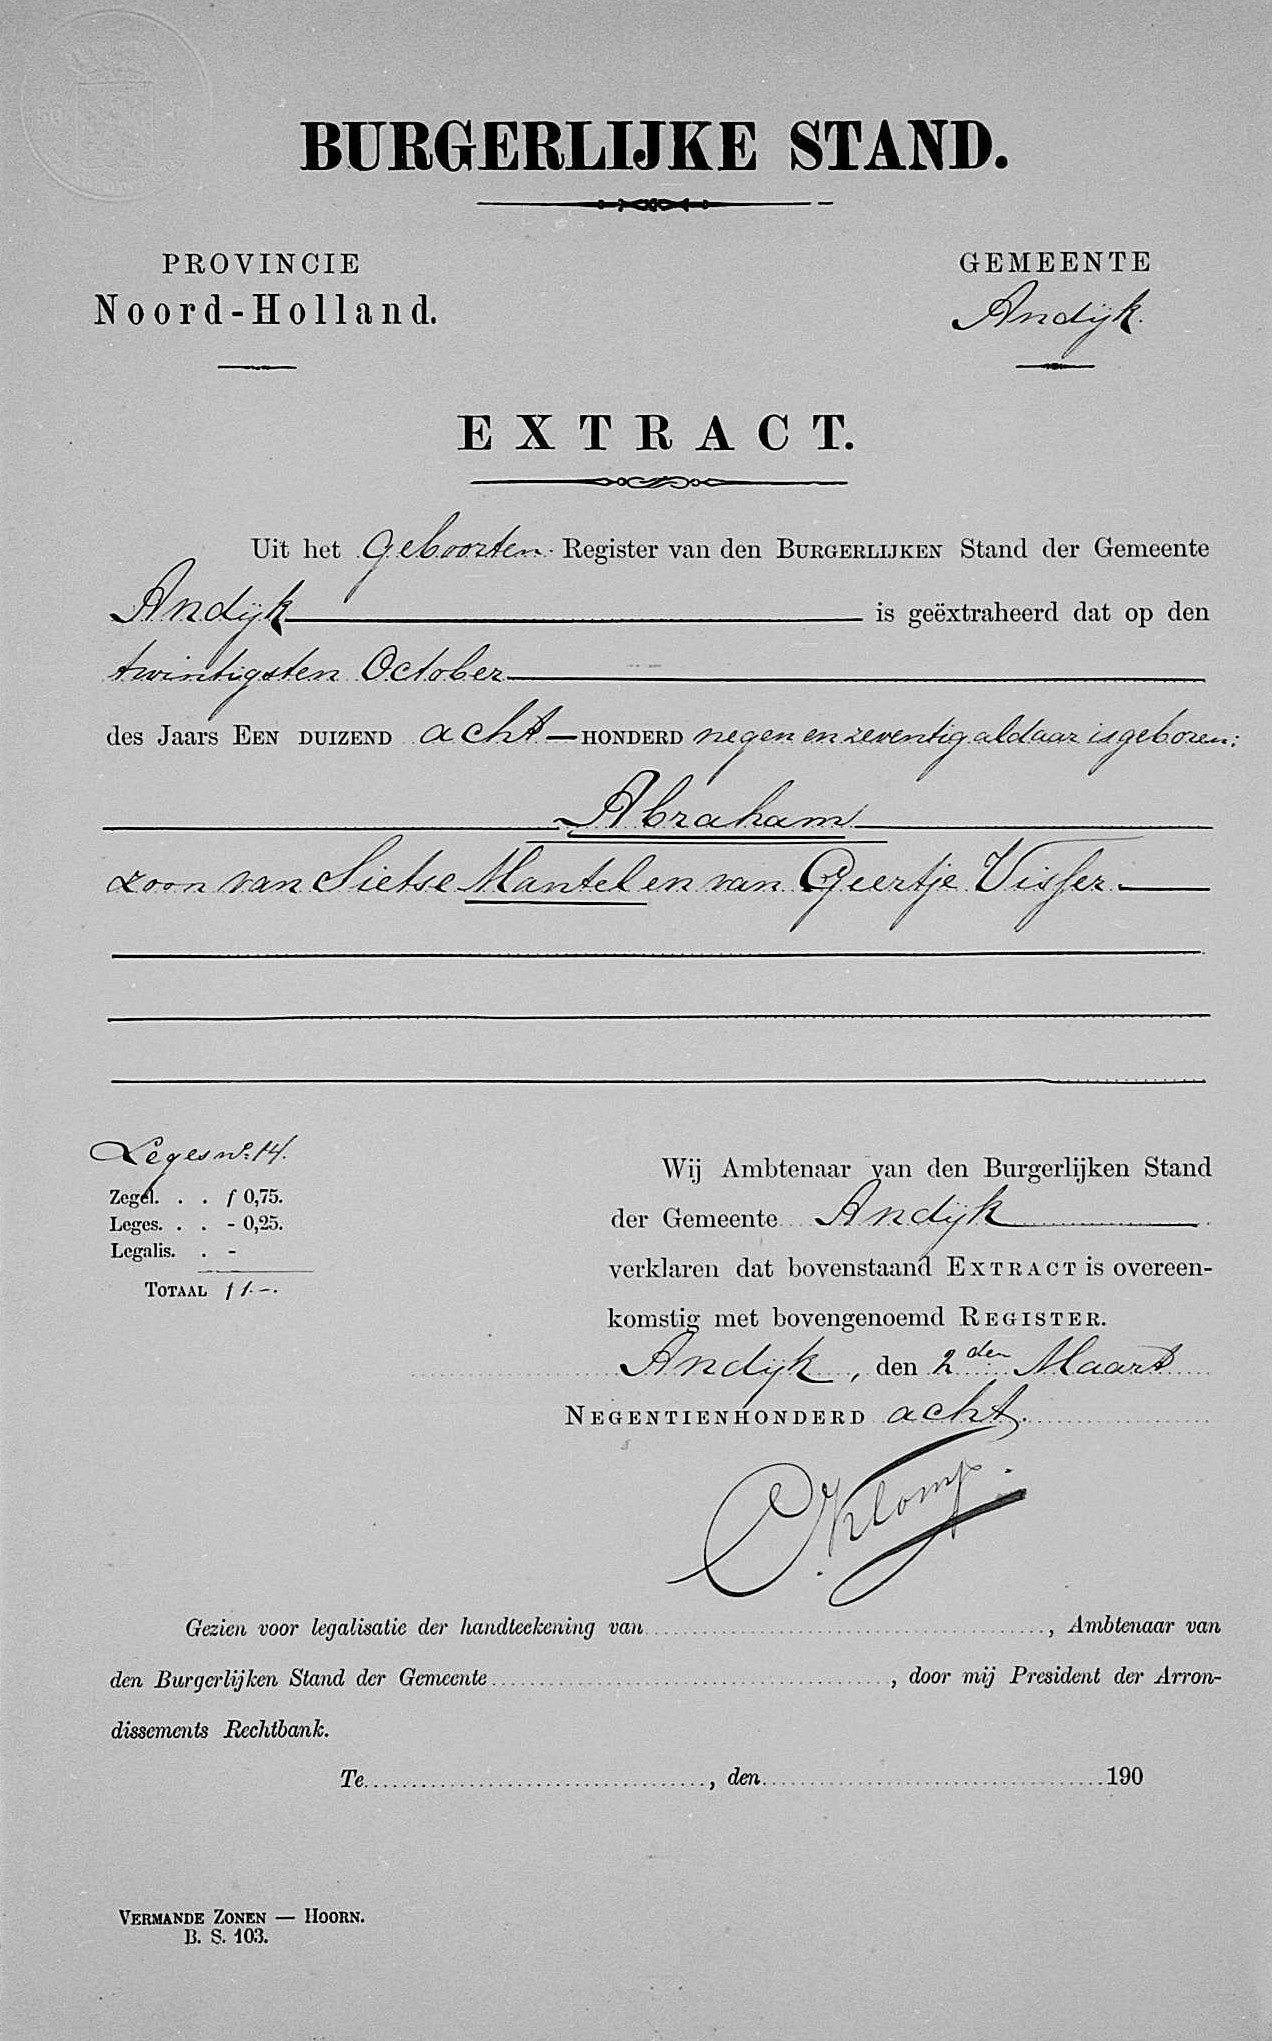 BURGERLIJKE STAND.
PROVINCIE
Noord-Holland.
GEMEENTE
Andijk.
EXTRACT.
Uit het Geboorten Register van den BURGERLIJKEN Stand der Gemeente
Andijk is geëxtraheerd dat op den
twintigsten October
des Jaars EEN DUIZEND acht HONDERD negen en zeventig aldaar is geboren:
Abraham
zoon van Sietse Mantel en van Geertje Visser.
Leges no. 14.
Zegel. . . f 0,75.
Leges. . . - 0,25.
Legalis. . -
TOTAAL f 1.-.
Wij Ambtenaar van den Burgerlijken Stand
der Gemeente Andijk
verklaren dat bovenstaand EXTRACT is overeen-
komstig met bovengenoemd REGISTER.
Andijk, den 2den Maart
NEGENTIENHONDERD acht.
C. Klomp.
Gezien voor legalisatie der handteekening van, Ambtenaar van
den Burgerlijken Stand der Gemeente, door mij President der Arron-
dissements Rechtbank.
Te, den 190
VERMANDE ZONEN — HOORN.
B. S. 103.